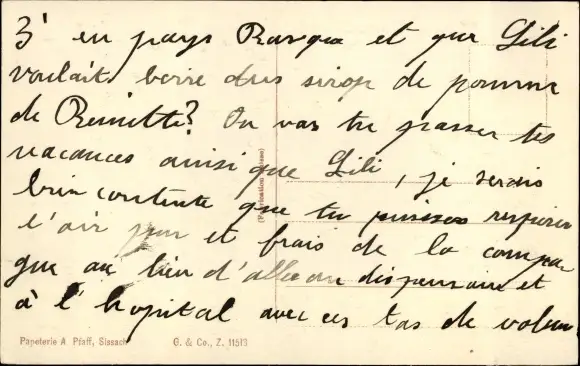 3' en pays Basque et que Lili
voulait boire dus sirop de pomme
de Reinette? Ou vas tu passer tes
vacances ainsi que Lili, je serais
bien contente que tu puisses respirer
l'air pur et frais de la campa
que au lieu d'aller au dispensaire et
à l'hopital avec ces tas de volum
(Fabrication Suisse)
Papeterie A Pfaff, Sissach G. & Co., Z. 11513